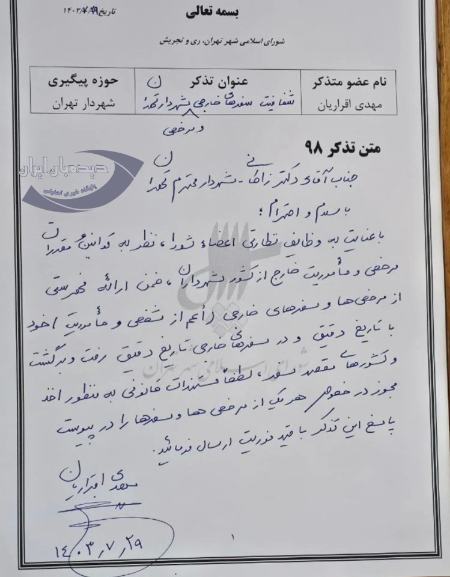 بسمه تعالی
تاریخ ۱۴۰۳/۷/۲۹
شورای اسلامی شهر تهران، ری و تجریش
نام عضو متذکر
عنوان تذکر
حوزه پیگیری
مهدی اقراریان
شفافیت سفرهای خارجی شهردار تهران
و مرخصی
شهردار تهران
متن تذکر ۹۸
جناب آقای دکتر زاکانی - شهردار محترم تهران
با سلام و احترام؛
با عنایت به وظایف نظارتی اعضاء شورا، نظر به قوانین و مقررات
مرخصی و مأموریت خارج از کشور شهرداران، ضمن ارائه فهرستی
از مرخصی‌ها و سفرهای خارجی (اعم از شخصی و مأموریت) خود
با تاریخ دقیق و در سفرهای خارجی تاریخ دقیق رفت و برگشت
و کشورهای مقصد سفر، لطفا مستندات قانونی به منظور اخذ
مجوز در خصوص هر یک از مرخصی ها و سفرها را در پیوست
پاسخ این تذکر با قید فوریت ارسال فرمائید.
مهدی اقراریان
۱۴۰۳٫۷٫۲۹
۱
دیدبان ایران